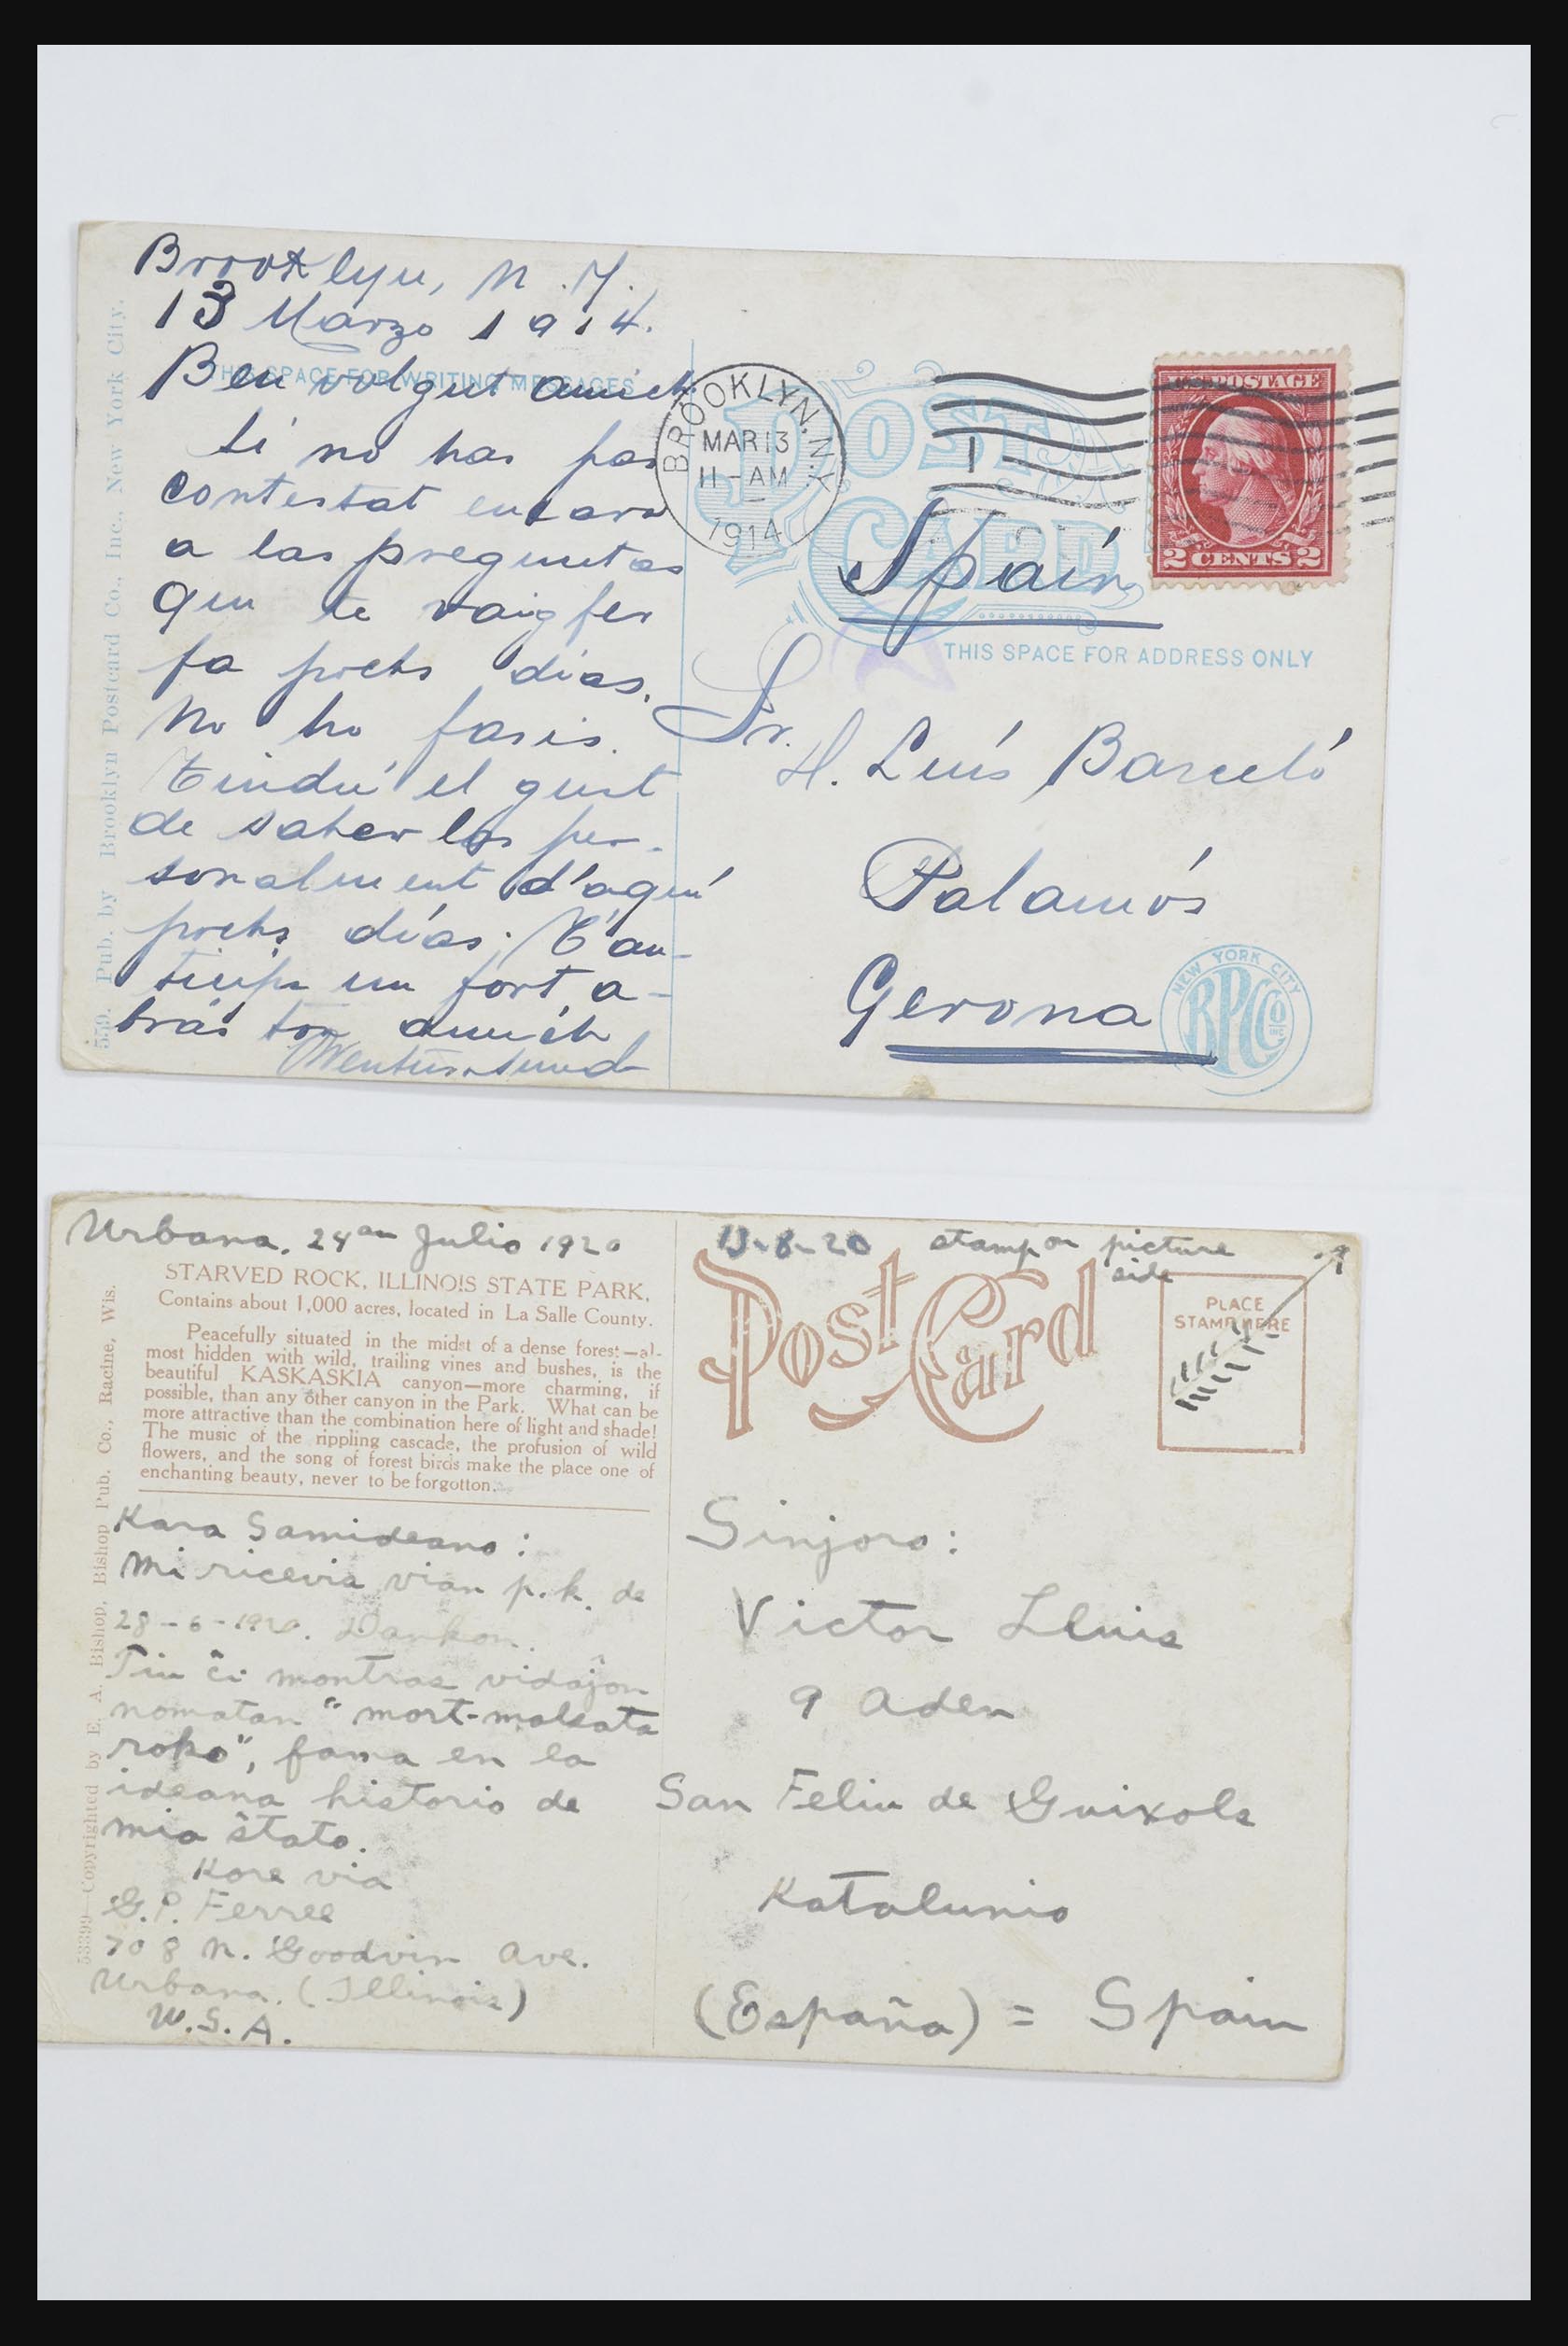 Brooklyn, N.Y.
13 Marzo 1914.
THIS SPACE FOR WRITING MESSAGES
Ben volgut amich
Si no has pas
contestat encara
a las preguntas
que te vaig fer
fa pochs dias,
No ho fasis.
Tindré el gust
de saberlas per-
sonalment d'aquí
pochs días. T'an-
ticipa un fort a-
bràs ton amich
559. Pub. by Brooklyn Postcard Co., Inc., New York City.
BROOKLYN, N.Y.
MAR 13
11-AM
1914
1
POST CARD
U.S. POSTAGE
2 CENTS 2
Spain
THIS SPACE FOR ADDRESS ONLY
Sr.
H. Luís Barceló
Palamós
Gerona
NEW YORK CITY
BPC Co INC
Urbana, 24an Julio 1920
STARVED ROCK, ILLINOIS STATE PARK.
Contains about 1,000 acres, located in La Salle County.
Peacefully situated in the midst of a dense forest—al-
most hidden with wild, trailing vines and bushes, is the
beautiful KASKASKIA canyon—more charming, if
possible, than any other canyon in the Park. What can be
more attractive than the combination here of light and shade!
The music of the rippling cascade, the profusion of wild
flowers, and the song of forest birds make the place one of
enchanting beauty, never to be forgotton.
Kara Samideano:
Mi ricevia vian p.k. de
28-6-1920. Dankon.
Tiu ĉi montras vidaĵon
nomatan "mort-malsata
roko", fama en la
ideana historio de
mia ŝtato.
Kore via
G.P. Ferree
708 N. Goodwin Ave.
Urbana. (Illinois)
U.S.A.
53399—Copyrighted by E. A. Bishop, Bishop Pub. Co., Racine, Wis.
13-8-20 stamp on picture
side
Post Card
PLACE
STAMP HERE
Sinjoro:
Victor Lluis
9 Aden
San Feliu de Guixols
Katalunio
(España) = Spain